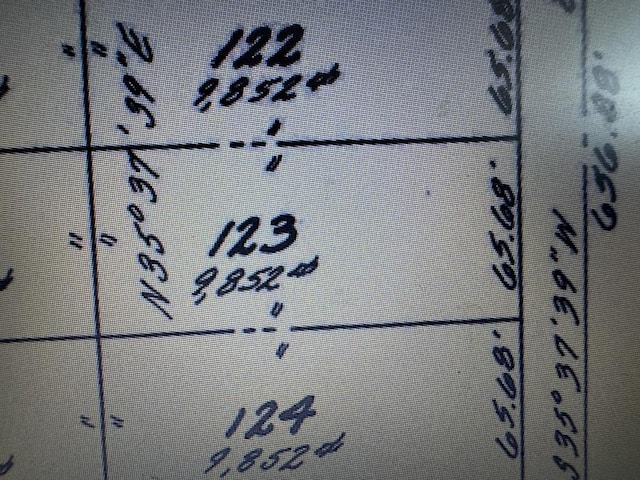 122
9,852 ⌗
"
"
123
9,852 ⌗
"
"
124
9,852 ⌗
" "
" "
" "
N35°37'39"E
65.68'
65.68'
65.68'
S35°37'39"W